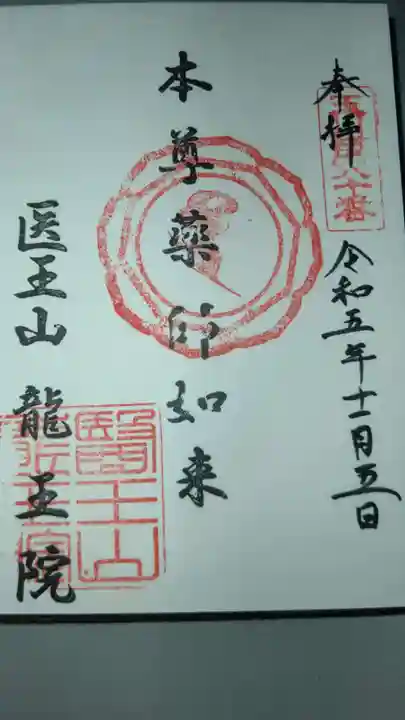 奉拝
令和五年十一月五日
本尊薬師如来
医王山龍王院
醫王山